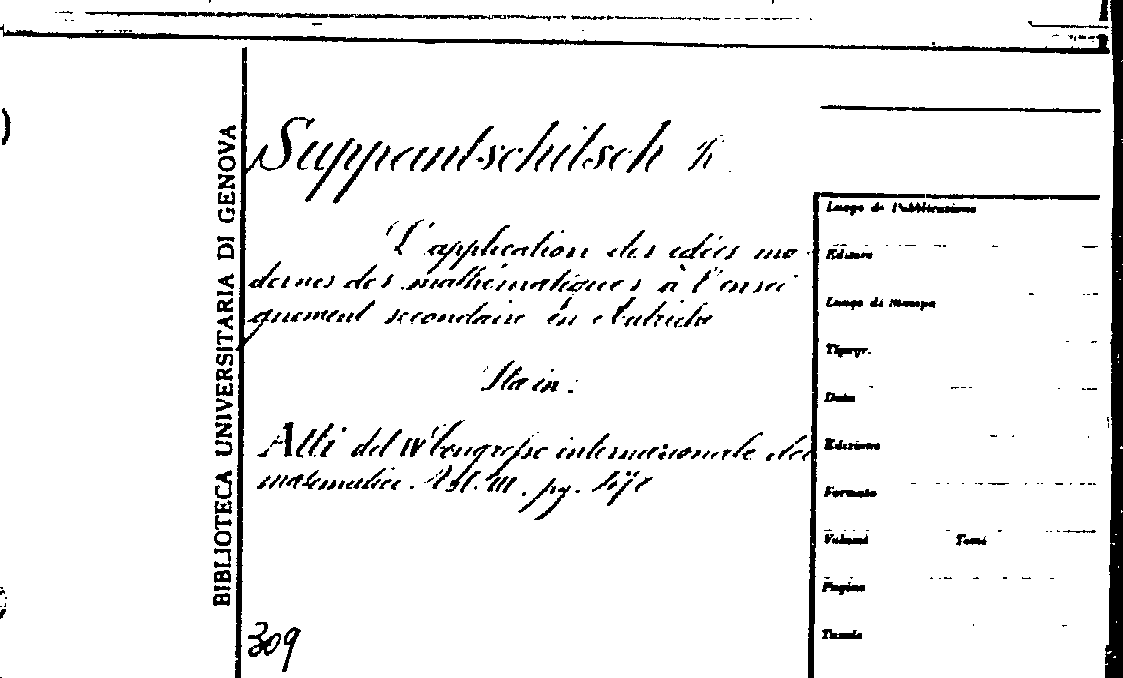 BIBLIOTECA UNIVERSITARIA DI GENOVA
Suppantschitsch R.
L'application des idées mo-
dernes des mathématiques à l'ensei
gnement secondaire en Autriche
Sta in:
Atti del IV Congresso internazionale dei
matematici. Vol. III. pg.
309
Luogo di Pubblicazione
Editore
Luogo di Stampa
Tipogr.
Data
Edizione
Formato
Volumi Tomi
Pagine
Tavole